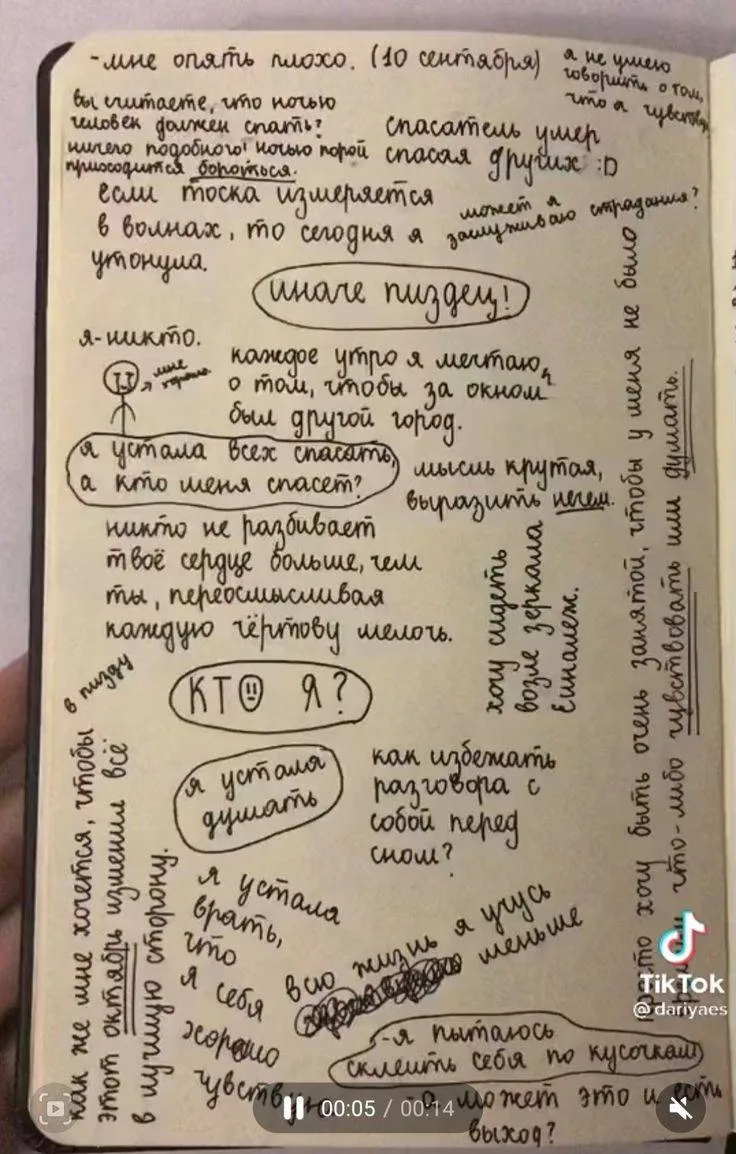 -мне опять плохо. (10 сентября)
я не умею
говорить о том,
что я чувствую
вы считаете, что ночью
человек должен спать?
ничего подобного! ночью порой
приходится бороться.
спасатель умер
спасая других :D
если тоска измеряется
в волнах, то сегодня я
утонула.
может я
заслуживаю страдания?
иначе пиздец!
я-никто.
мне
каждое утро я мечтаю
о том, чтобы за окном
был другой город.
я устала всех спасать,
а кто меня спасет?
мысль крутая,
выразить нечем.
никто не разбивает
твоё сердце больше, чем
ты, переосмысливая
каждую чёртову мелочь.
хочу сидеть
возле зеркала
просто хочу быть очень занятой, чтобы у меня не было
что-либо чувствовать или думать.
в пизду
КТО Я?
я устала
думать
как избежать
разговора с
собой перед
сном?
как же мне хочется, чтобы
этот октябрь изменил всё
в лучшую сторону.
я устала
врать,
что
я себя
хорошо
чувствую
всю жизнь я учусь
меньше
-я пытаюсь
склеить себя по кусочкам
-а может это и есть
выход?
TikTok
@dariyaes
00:05 / 00:14